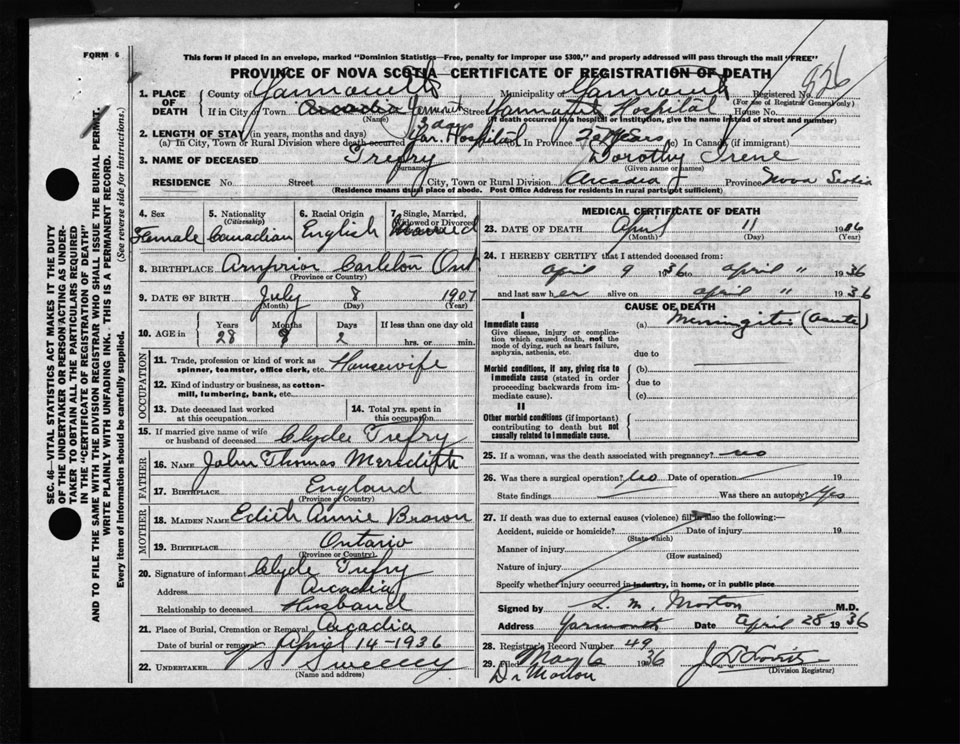 FORM 6
This form if placed in an envelope, marked "Dominion Statistics—Free, penalty for improper use $300," and properly addressed will pass through the mail "FREE"
PROVINCE OF NOVA SCOTIA—CERTIFICATE OF REGISTRATION OF DEATH
926
1. PLACE OF DEATH County of Yarmouth Municipality of Yarmouth Registered No.
(For use of Registrar General only)
If in City or Town Arcadia Yarmouth Street Yarmouth Hospital House No.
(Name) (If death occurred in hospital or institution, give the name instead of street and number)
2. LENGTH OF STAY (in years, months and days) 2 days
(a) In City, Town or Rural Division where death occurred Yar. Hospital In Province (c) In Canada (if immigrant)
3. NAME OF DECEASED Trefry Dorothy Irene
(Surname) (Given name or names)
RESIDENCE No. Street City, Town or Rural Division Arcadia Province Nova Scotia
(Residence means usual place of abode. Post Office Address for residents in rural parts not sufficient)
4. Sex Female
5. Nationality (Citizenship) Canadian
6. Racial Origin English
7. Single, Married, Widowed or Divorced Married
8. BIRTHPLACE Arnprior Carleton Ont.
(Province or Country)
9. DATE OF BIRTH July 8 1907
(Month) (Day) (Year)
10. AGE in Years Months Days If less than one day old
28 9 2 hrs. or min.
OCCUPATION
11. Trade, profession or kind of work as spinner, teamster, office clerk, etc. Housewife
12. Kind of industry or business, as cotton-mill, lumbering, bank, etc.
13. Date deceased last worked at this occupation
14. Total yrs. spent in this occupation
15. If married give name of wife or husband of deceased Clyde Trefry
FATHER
16. NAME John Thomas Meredith
17. BIRTHPLACE England
(Province or Country)
MOTHER
18. MAIDEN NAME Edith Annie Brown
19. BIRTHPLACE Ontario
(Province or Country)
20. Signature of informant Clyde Trefry
Address Arcadia
Relationship to deceased Husband
21. Place of Burial, Cremation or Removal Arcadia
Date of burial or removal April 14-1936
22. UNDERTAKER Sweeny
(Name and address)
MEDICAL CERTIFICATE OF DEATH
23. DATE OF DEATH April 11 1936
(Month) (Day) (Year)
24. I HEREBY CERTIFY that I attended deceased from:
April 9 1936 to April 11 1936
and last saw her alive on April 11 1936
CAUSE OF DEATH
I
Immediate cause (a) Meningitis (acute)
Give disease, injury or complication which caused death, not the mode of dying, such as heart failure, asphyxia, asthenia, etc.
due to
Morbid conditions, if any, giving rise to Immediate cause (stated in order proceeding backwards from immediate cause)
(b)
due to
(c)
II
Other morbid conditions (if important) contributing to death but not causally related to Immediate cause.
25. If a woman, was the death associated with pregnancy? no
26. Was there a surgical operation? no Date of operation
State findings Was there an autopsy? Yes
27. If death was due to external causes (violence) fill in also the following:—
Accident, suicide or homicide? Date of injury 19
(State which)
Manner of injury
(How sustained)
Nature of injury
Specify whether injury occurred in industry, in home, or in public place
Signed by L. M. Morton M.D.
Address Yarmouth Date April 28 1936
28. Registrar's Record Number 49
29. Filed May 6 1936
(Division Registrar)
Dr Morton
SEC. 46—VITAL STATISTICS ACT MAKES IT THE DUTY OF THE UNDERTAKER OR PERSON ACTING AS UNDERTAKER TO OBTAIN ALL THE PARTICULARS REQUIRED IN THE "CERTIFICATE OF REGISTRATION OF DEATH" AND TO FILE THE SAME WITH THE DIVISION REGISTRAR WHO SHALL ISSUE THE BURIAL PERMIT.
WRITE PLAINLY WITH UNFADING INK. THIS IS A PERMANENT RECORD.
Every item of information should be carefully supplied. (See reverse side for instructions.)